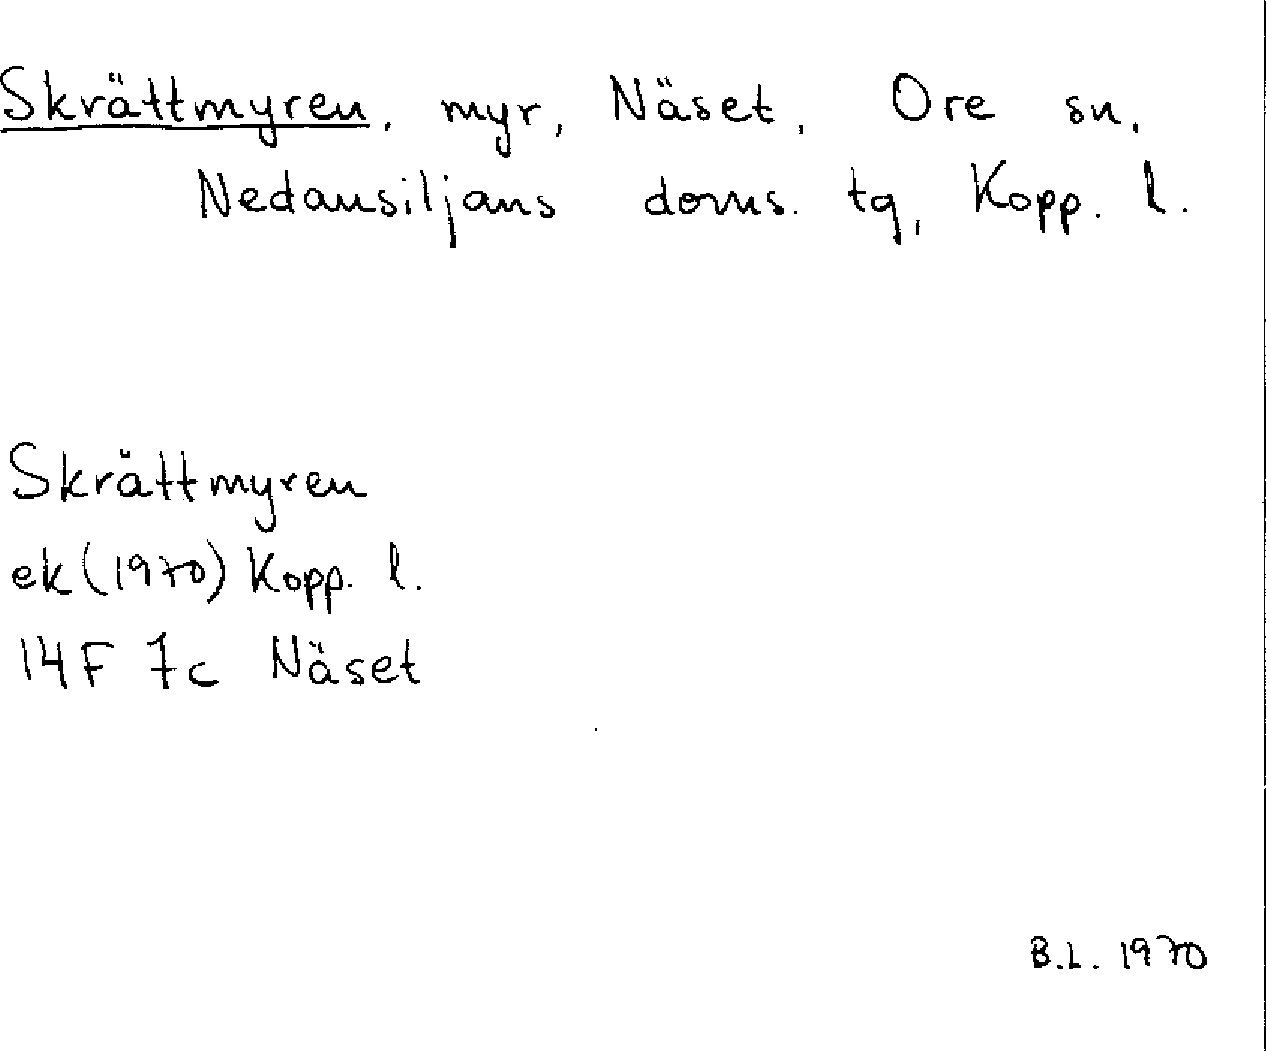 Skrättmyren, myr, Näset, Ore sn,
Nedansiljans doms. tg, Kopp. l.
Skrättmyren
ek (1970) Kopp. l.
14F 7c Näset
B.L. 1970